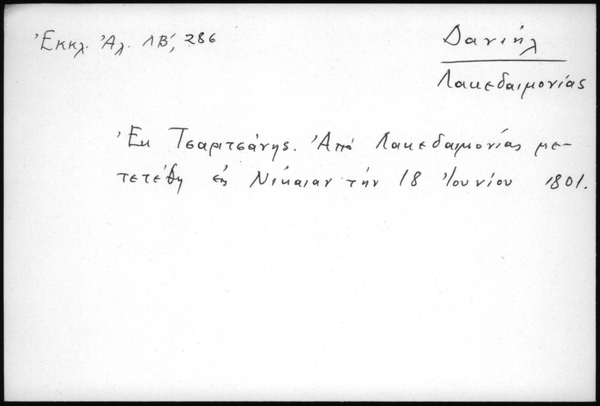 Ἐκκλ. Ἀλ. ΛΒ΄, 286
Δανιήλ
Λακεδαιμονίας
Ἐκ Τσαριτσάνης. Ἀπό Λακεδαιμονίας με-
τετέθη εἰς Νίκαιαν τήν 18 Ἰουνίου 1801.